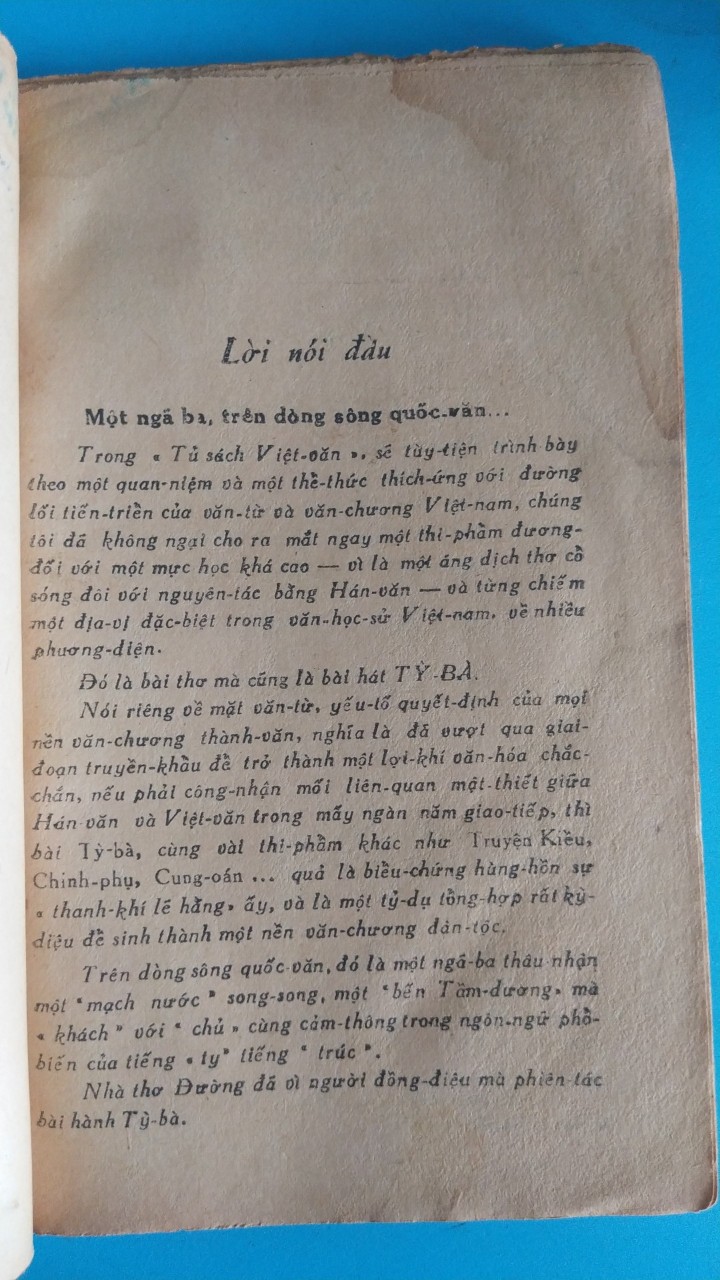 Lời nói đầu
Một ngã ba, trên dòng sông quốc-văn...
Trong « Tủ sách Việt-văn », sẽ tùy-tiện trình-bày
theo một quan-niệm và một thể-thức thích-ứng với đường
lối tiến-triển của văn-tử và văn-chương Việt-nam, chúng
tôi đã không ngại cho ra mắt ngay một thi-phẩm đương-
đối với một mực học khá cao — vì là một áng dịch thơ cổ
sóng đôi với nguyên-tác bằng Hán-văn — và từng chiếm
một địa-vị đặc-biệt trong văn-học-sử Việt-nam, về nhiều
phương-diện.
Đó là bài thơ mà cũng là bài hát TỲ-BÀ.
Nói riêng về mặt văn-tử, yếu-tố quyết-định của mọi
nền văn-chương thành-văn, nghĩa là đã vượt qua giai-
đoạn truyền-khẩu để trở thành một lợi-khí văn-hóa chắc-
chắn, nếu phải công-nhận mối liên-quan mật-thiết giữa
Hán-văn và Việt-văn trong mấy ngàn năm giao-tiếp, thì
bài Tỳ-bà, cùng vài thi-phẩm khác như Truyện Kiều,
Chinh-phụ, Cung-oán ... quả là biểu-chứng hùng-hồn sự
« thanh-khí lẽ hằng» ấy, và là một tỷ-dụ tổng-hợp rất kỳ-
diệu để sinh thành một nền văn-chương dân-tộc.
Trên dòng sông quốc-văn, đó là một ngã-ba thâu nhận
một "mạch nước" song-song, một "bến Tầm-dương» mà
« khách" với " chủ » cùng cảm-thông trong ngôn-ngữ phổ-
biến của tiếng « ty" tiếng " trúc".
Nhà thơ Đường đã vì người đồng-điệu mà phiên-tác
bài hành Tỳ-bà.